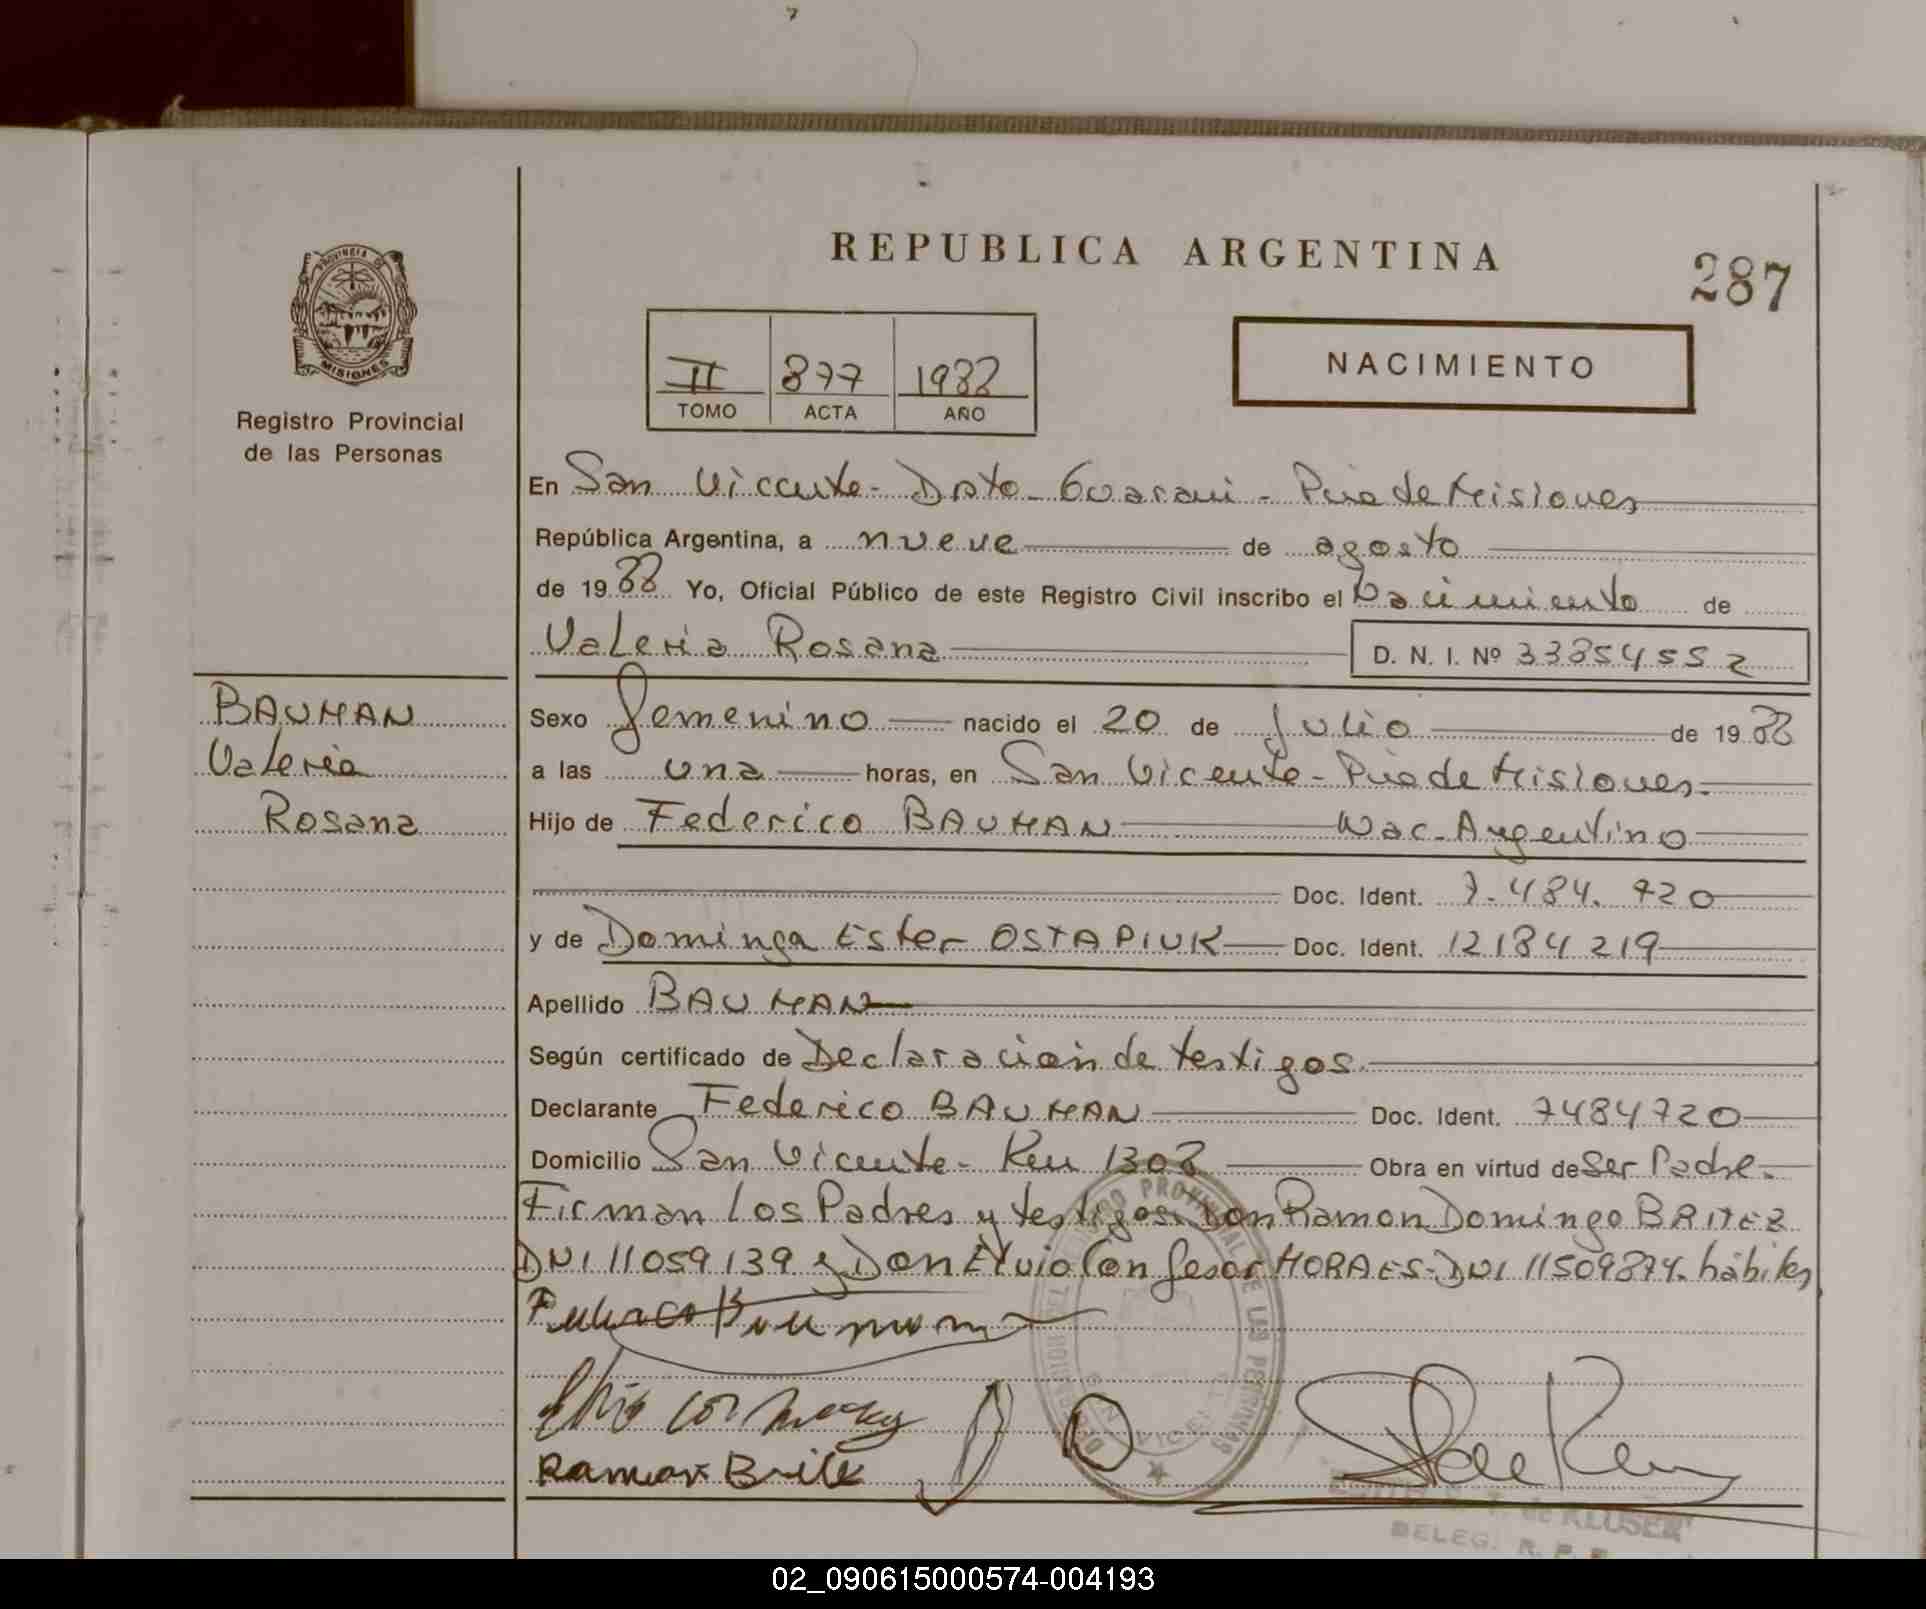 REPUBLICA ARGENTINA
287
PROVINCIA DE
MISIONES
Registro Provincial
de las Personas
II 877 1988
TOMO ACTA AÑO
NACIMIENTO
En San Vicente - Dpto - Guarani - Pcia de Misiones
República Argentina, a nueve de agosto
de 1988 Yo, Oficial Público de este Registro Civil inscribo el nacimiento de
Valeria Rosana
D. N. I. Nº 33854552
BAUMAN
Valeria
Rosana
Sexo femenino nacido el 20 de Julio de 1988
a las una horas, en San Vicente - Pcia de Misiones.
Hijo de Federico BAUMAN Nac. Argentino
Doc. Ident. 7.484.720
y de Dominga Ester OSTAPIUK Doc. Ident. 12184219
Apellido BAUMAN
Según certificado de Declaración de testigos.
Declarante Federico BAUMAN Doc. Ident. 7484720
Domicilio San Vicente - Km 1308 Obra en virtud de Ser Padre.
Firman Los Padres y testigos: Don Ramon Domingo BRITEZ
DNI 11059139 y Don Elvio Con fesor MORAES - DNI 11509874. hábiles
Ramon Brite
de KLUSER
DELEG. R. P.
02_090615000574-004193